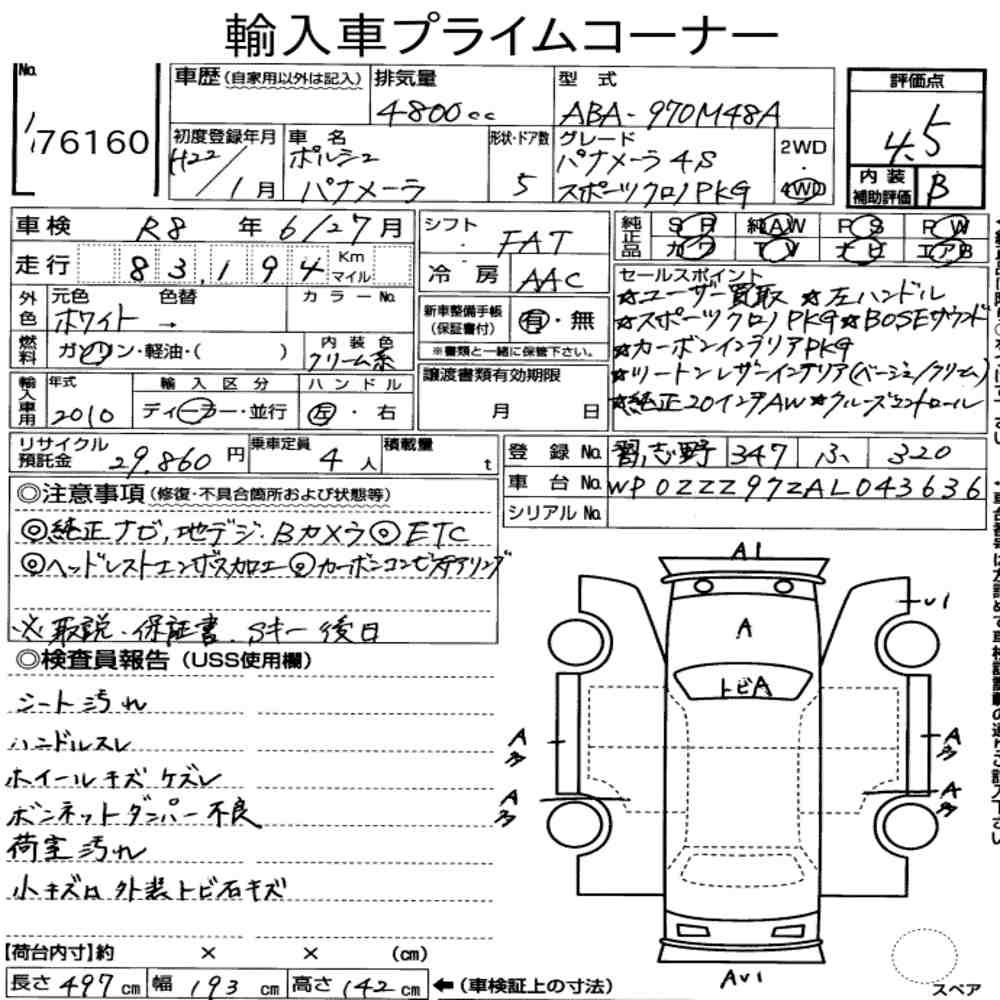 輸入車プライムコーナー
No. 76160
車歴(自家用以外は記入) 排気量 4800cc 型式 ABA-970M48A
評価点 4.5
初度登録年月 H22/1月 車名 ポルシェ パナメーラ 形状・ドア数 5 グレード パナメーラ4S スポーツクロノPKG 2WD 4WD
内装補助評価 B
車検 R8年 6/27月 シフト FAT 純正品 SR 純AW PS PW
カワ TV ナビ エアB
走行 83,194 Km マイル 冷房 AAC
セールスポイント
☆ユーザー買取 ☆左ハンドル
☆スポーツクロノPKG☆BOSEサウンド
☆カーボンインテリアPKG
☆ツートンレザーインテリア(ベージュ/クリーム)
☆純正20インチAW☆クルーズコントロール
外色 元色 ホワイト 色替 → カラーNo.
新車整備手帳(保証書付) 有・無
※書類と一緒に保管下さい。
燃料 ガソリン・軽油・( ) 内装色 クリーム系
輸入車用 年式 2010 輸入区分 ディーラー・並行 ハンドル 左・右
譲渡書類有効期限 月 日
リサイクル預託金 29,860円 乗車定員 4人 積載量 t
登録No. 習志野 347 ふ 320
車台No. WP0ZZZ97ZAL043636
シリアルNo.
◎注意事項(修復・不具合箇所および状態等)
◎純正ナビ,地デジ・Bカメラ◎ETC
◎ヘッドレストエンボス加工◎カーボンコンビステアリング
※取説・保証書・Sキー後日
◎検査員報告(USS使用欄)
シート汚れ
ハンドルスレ
ホイールキズケズレ
ボンネットダンパー不良
荷室汚れ
小キズ有 外装トビ石キズ
A1
ﾚ1
A
トビA
A
A
A
A
Aﾚ1
スペア
【荷台内寸】約 × × (cm)
長さ 497cm 幅 193cm 高さ 142cm ←(車検証上の寸法)